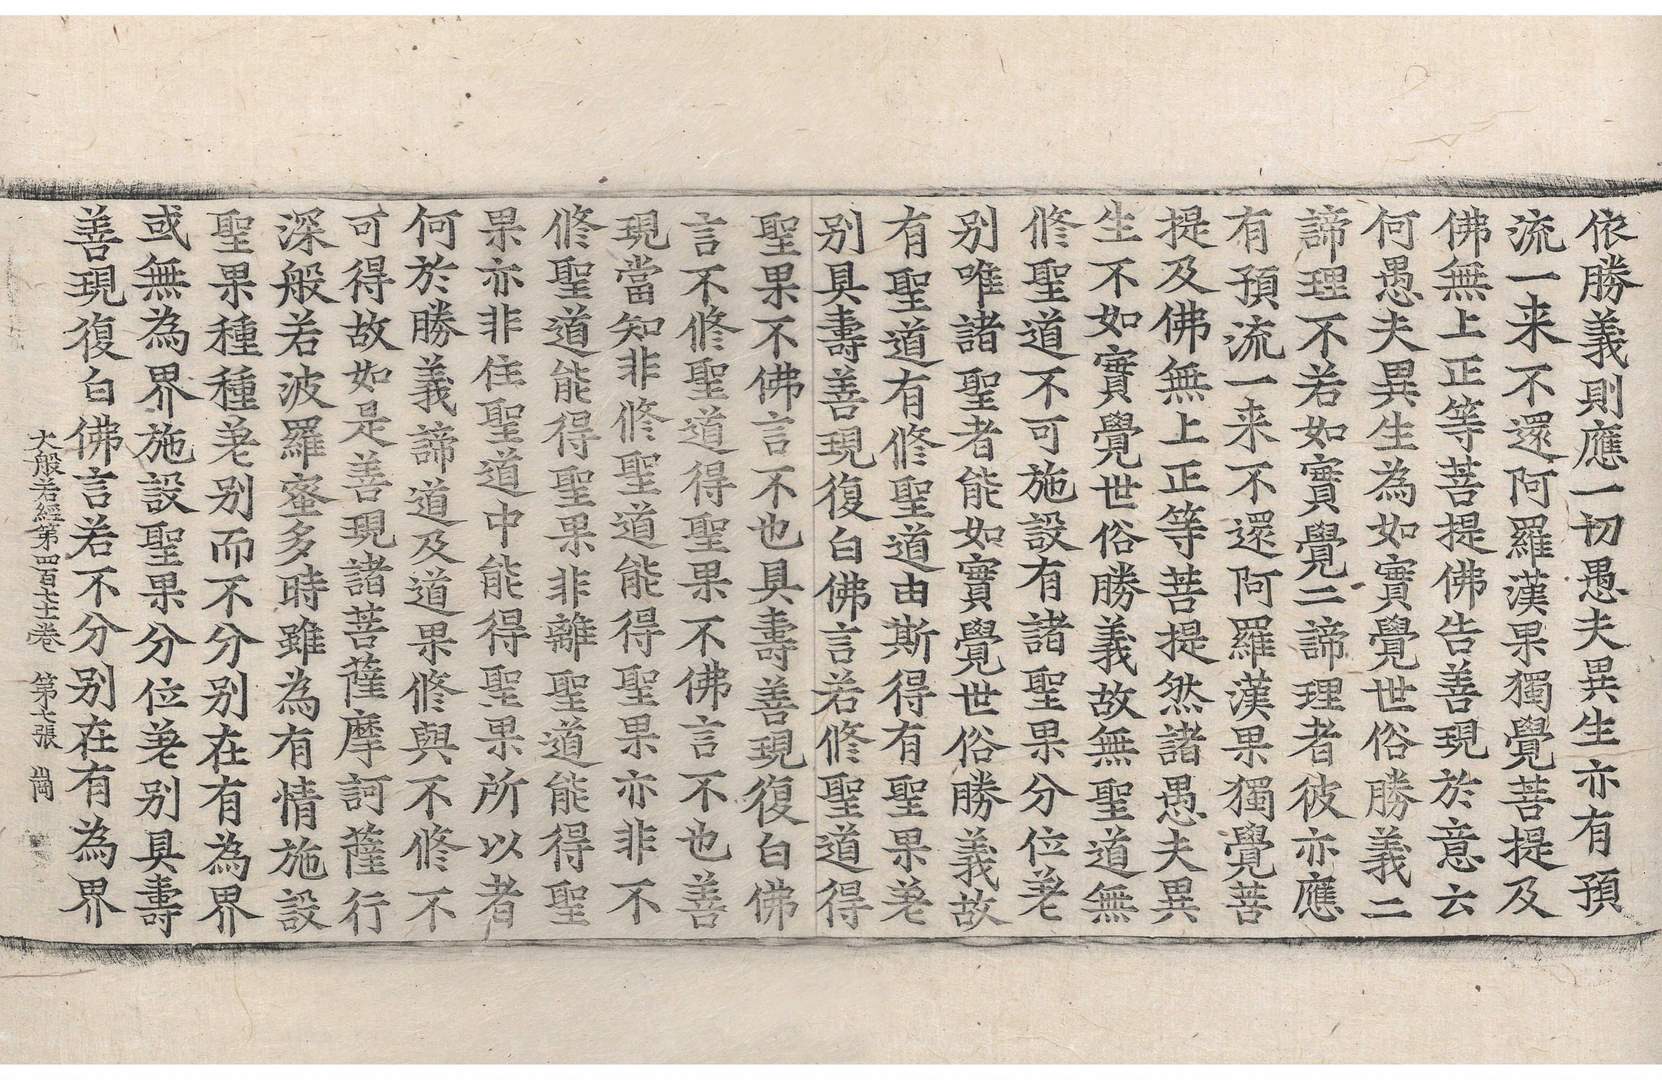 依勝義則應一切愚夫異生亦有預
流一来不還阿羅漢果獨覺菩提及
佛無上正等菩提佛告善現於意云
何愚夫異生為如實覺世俗勝義二
諦理不若如實覺二諦理者彼亦應
有預流一来不還阿羅漢果獨覺菩
提及佛無上正等菩提然諸愚夫異
生不如實覺世俗勝義故無聖道無
修聖道不可施設有諸聖果分位差
别唯諸聖者能如實覺世俗勝義故
有聖道有修聖道由斯得有聖果差
别具壽善現復白佛言若修聖道得
聖果不佛言不也具壽善現復白佛
言不修聖道得聖果不佛言不也善
現當知非修聖道能得聖果亦非不
修聖道能得聖果非離聖道能得聖
果亦非住聖道中能得聖果所以者
何於勝義諦道及道果修與不修不
可得故如是善現諸菩薩摩訶薩行
深般若波羅蜜多時雖為有情施設
聖果種種差别而不分别在有為界
或無為界施設聖果分位差别具壽
善現復白佛言若不分别在有為界
大般若經第四百卷 第七張 崗